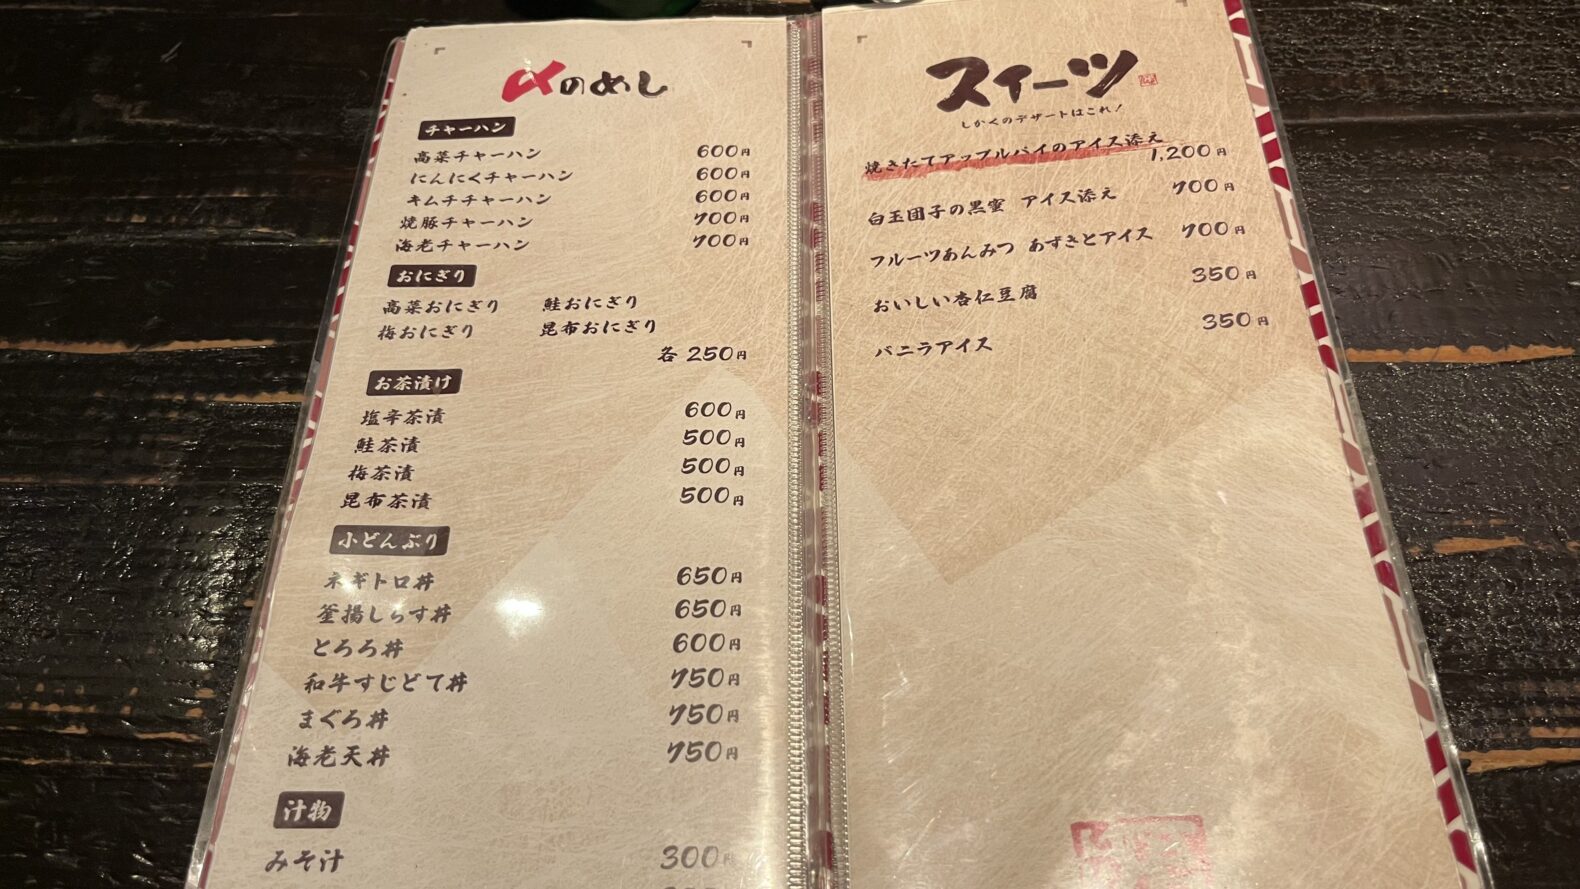 〆のめし
チャーハン
高菜チャーハン 600円
にんにくチャーハン 600円
キムチチャーハン 600円
焼豚チャーハン 700円
海老チャーハン 700円
おにぎり
高菜おにぎり 鮭おにぎり
梅おにぎり 昆布おにぎり
各 250円
お茶漬け
塩辛茶漬 600円
鮭茶漬 500円
梅茶漬 500円
昆布茶漬 500円
小どんぶり
ネギトロ丼 650円
釜揚しらす丼 650円
とろろ丼 600円
和牛すじどて丼 750円
まぐろ丼 750円
海老天丼 750円
汁物
みそ汁 300円
スイーツ
しかくのデザートはこれ！
焼きたてアップルパイのアイス添え
1,200円
白玉団子の黒蜜 アイス添え 700円
フルーツあんみつ あずきとアイス 700円
おいしい杏仁豆腐 350円
バニラアイス 350円